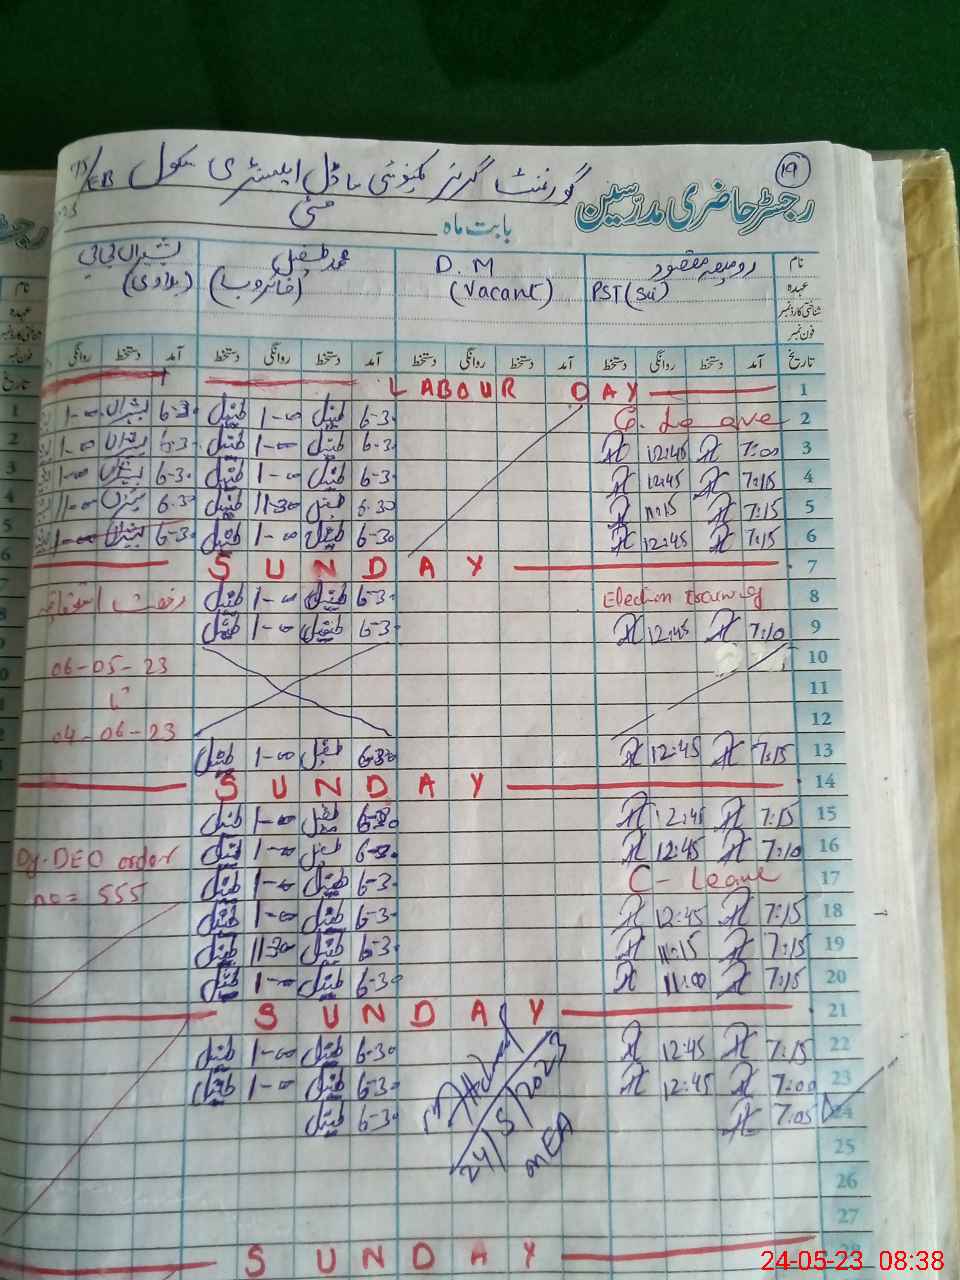 19
گورنمنٹ گرلز کمیونٹی ماڈل ایلیمنٹری سکول /EB
رجسٹر حاضری مدرسین
بابت ماہ مئی
نام رومیصہ مقصود D.M محمد طفیل بشیراں بی بی
عہدہ PST (Sci) (Vacant)
شناختی کارڈ نمبر
فون نمبر
تاریخ آمد دستخط روانگی دستخط آمد دستخط روانگی دستخط آمد دستخط روانگی دستخط آمد دستخط روانگی
1 LABOUR DAY
2 6-30 طفیل 1-00 طفیل 6-30 بشیراں 1-00
3 7:00 12:45 6-30 طفیل 1-00 طفیل 6-30 بشیراں 1-00
4 7:15 12:45 6-30 طفیل 1-00 طفیل 6-30 بشیراں 1-00
5 7:15 11:15 6-30 طفیل 11-30 طفیل 6-30 بشیراں 11-00
6 7:15 12:45 6-30 طفیل 1-00 طفیل 6-30 بشیراں 1-00
7 SUNDAY
8 Election training 6-30 طفیل 1-00 طفیل رخصت
9 7:10 12:45 6-30 طفیل 1-00 طفیل
10 06-05-23
11 تا
12 04-06-23
13 7:15 12:45 6-30 طفیل 1-00 طفیل
14 SUNDAY
15 7:15 12:45 6-30 طفیل 1-00 طفیل
16 7:10 12:45 6-30 طفیل 1-00 طفیل Dy-DEO order
17 C-Leave 6-30 طفیل 1-00 طفیل no= 555
18 7:15 12:45 6-30 طفیل 1-00 طفیل
19 7:15 11:15 6-30 طفیل 11-30 طفیل
20 7:15 11:00 6-30 طفیل 1-00 طفیل
21 SUNDAY
22 7:15 12:45 6-30 طفیل 1-00 طفیل
23 7:00 12:45 6-30 طفیل 1-00 طفیل
24 7:05 6-30 طفیل
24/5/2023
MEA
25
26
27
28 SUNDAY
24-05-23 08:38